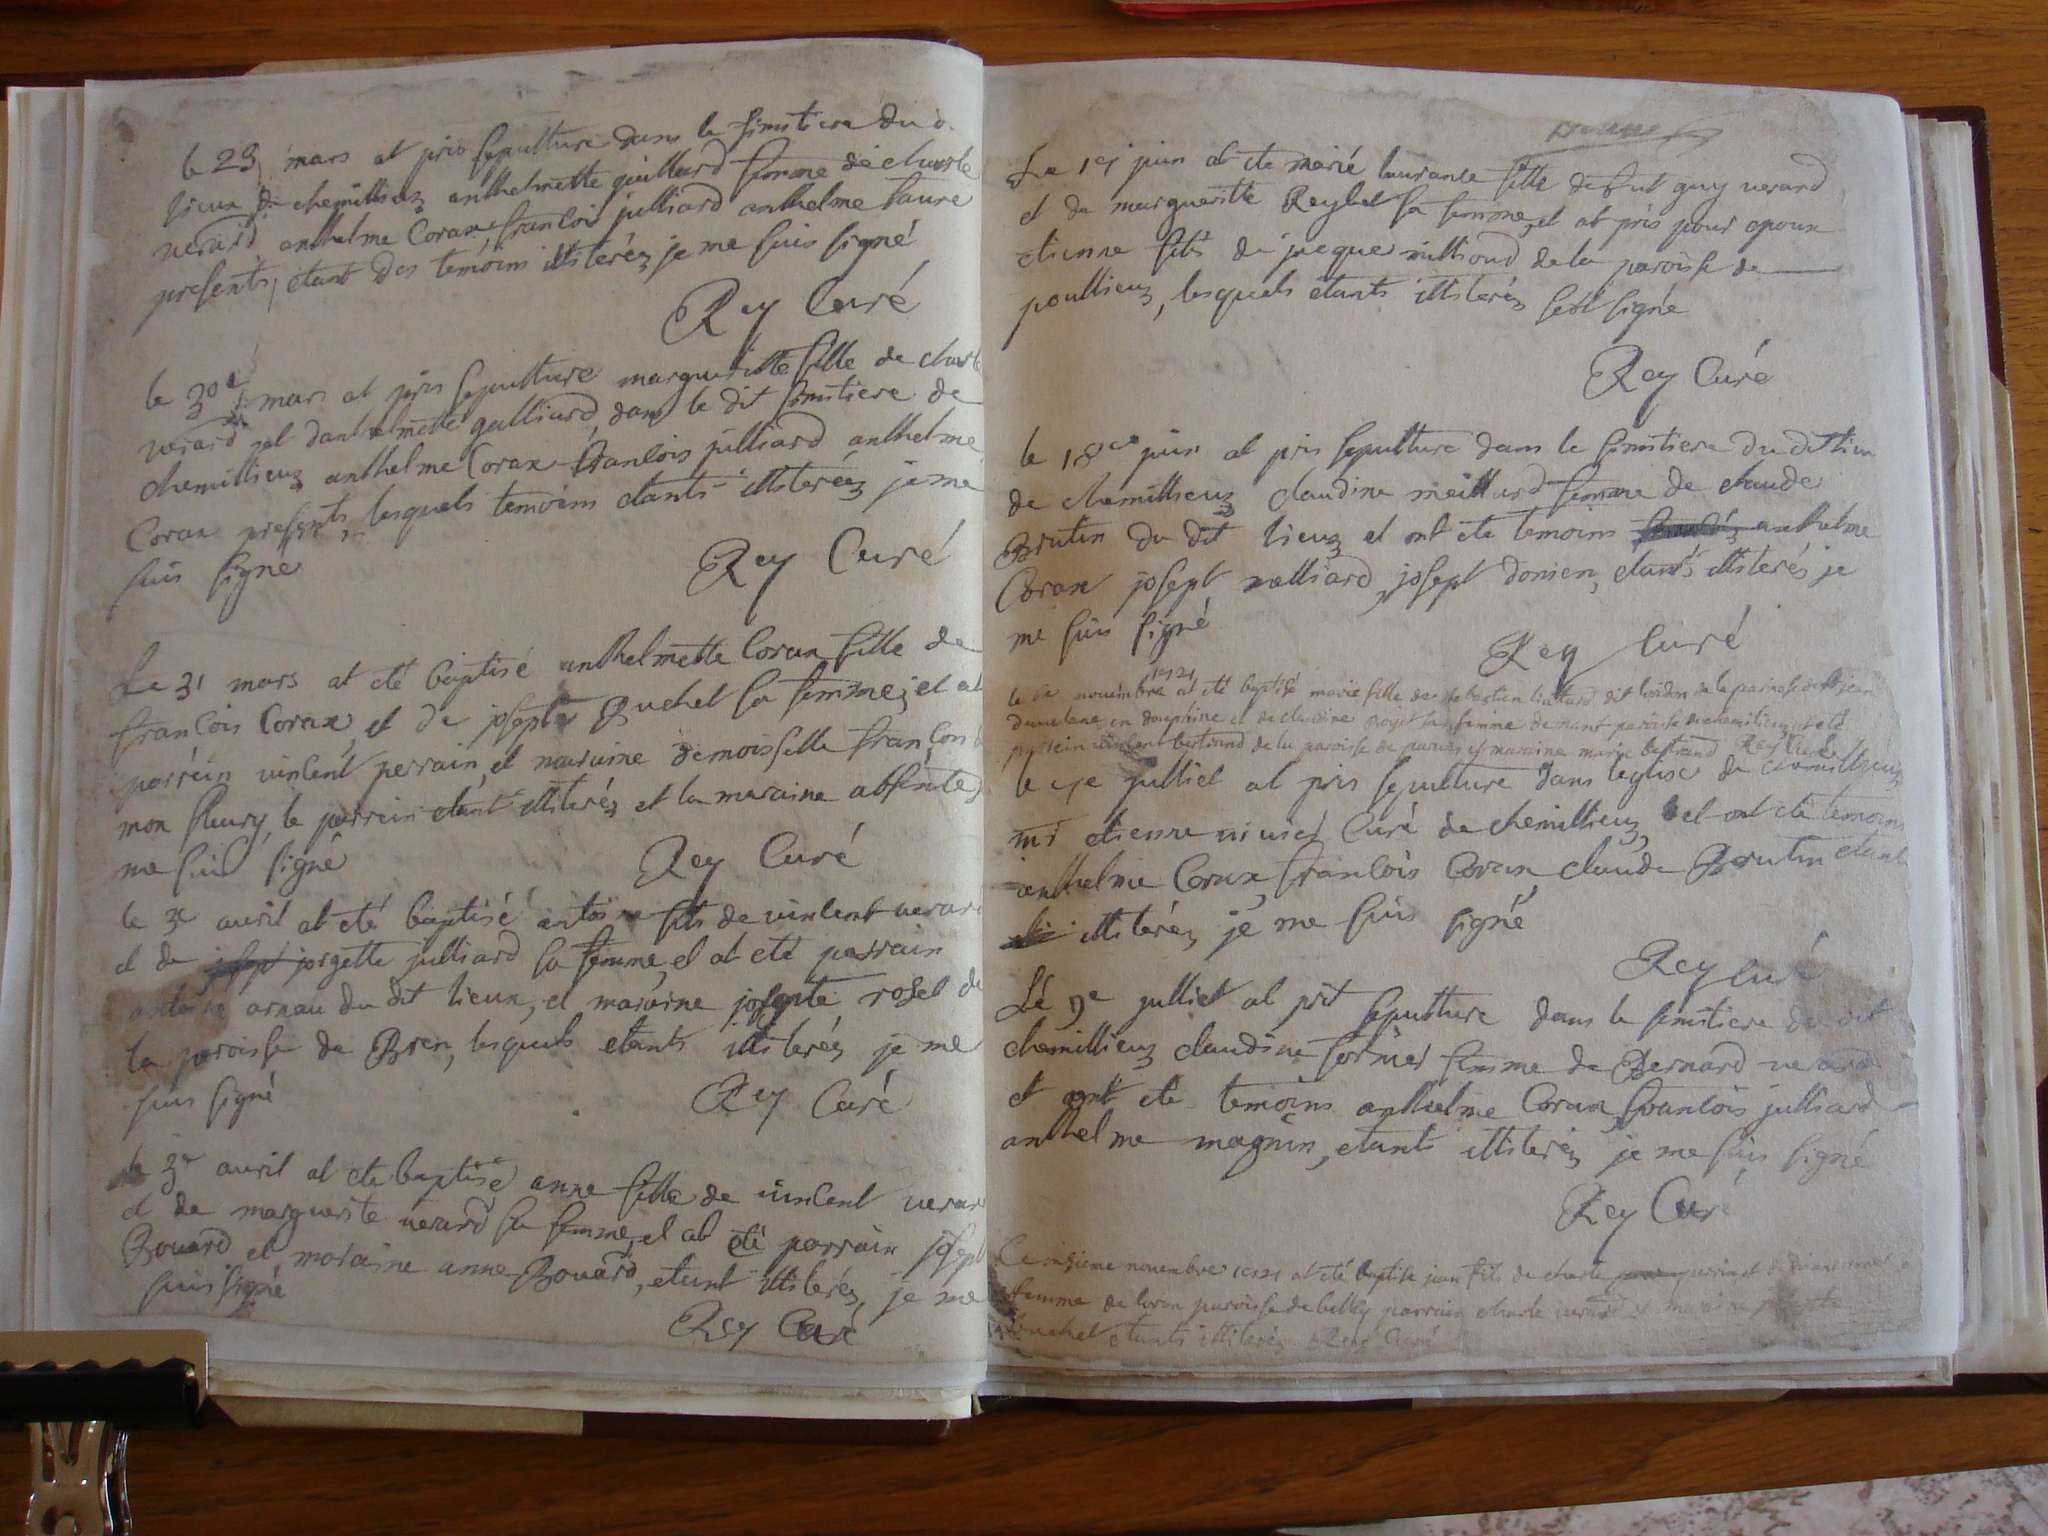 le 29 mars at pris sepulture dans le simitiere du d.
lieux de chemillieuz anthelmette guilliard femme de charle
verard anthelme Corax francois julliard anthelme faure
presents, etant des temoins illiteréz je me suis signé
Rey Curé
le 30e mars at pris sepulture margueritte fille de charle
verard et danthelmette guilliard, dans le dit simitiere de
chemillieuz anthelme Corax francois julliard anthelme
Corax presents, lesquels temoins etants illiteréz je me
suis signé
Rey Curé
Le 31 mars at eté baptisé anthelmette Corax fille de
francois Corax et de josepte Buchet sa femme, et at
parrein vincent perrain, et maraine demoisselle francon
mon fleury, le parrein etant illiteréz et la maraine absente
me suis signé
Rey Curé
le 3e avril at eté baptisé antoine fils de vincent verard
et de jorgette julliard sa femme, et at eté parrain
antoine arnau du dit lieux, et maraine josepte roset de
la paroisse de Bren, lesquels etants illiteréz je me
suis signé
Rey Curé
le 3e avril at ete baptisé anne fille de vincent verard
et de marguerite verard sa femme, et at eté parrain josept
Bouard et maraine anne Bouard, etant illiteréz, je me
suis signé
Rey Curé
Le 1er juin at ete marié laurance fille defeut guy verard
et de margueritte Reybet sa femme, et at pris pour epoux
etienne fils de jacque milliond de la paroisse de
poullieuz, lesquels etants illiteréz soit signé
Rey Curé
le 18e juin at pris sepulture dans le simitiere du dit lieu
de chemillieuz claudine meilliard femme de claude
Brutin du dit lieuz et ont ete temoins anthelme
Corax josept malliard, josept donien, etants illiterés je
me suis signé
Rey Curé
1721
le 6e novembre at eté baptisé marie fille de sebastien liotard dit loridon de la paroisse de st jean
en dauphine et de claudine roget sa femme de nant paroisse de chemillieuz et eté
parrein vincent bertrand de la paroisse de parves et maraine marie bertrand Rey Curé
le 4e julliet at pris sepulture dans leglise de chemillieuz
mr etienne Curé de chemillieuz, et ont eté temoins
anthelme Corax, francois Corax claude Brutin etant
illiteréz, je me suis signé
Rey Curé
Lé 9e julliet at prit sepulture dans le simitiere du dit
chemillieuz claudine fornier femme de Bernard verard
et ont ete temoins anthelme Corax, francois julliard
anthelme magnin, etants illiteréz je me suis signé
Rey Curé
Le onzieme novembre 1721 at eté baptise jean fils de charle perrin et de
femme de loron paroisse de belley parrain charle verard et maraine josepte
Buchet etants illiteréz Rey Curé